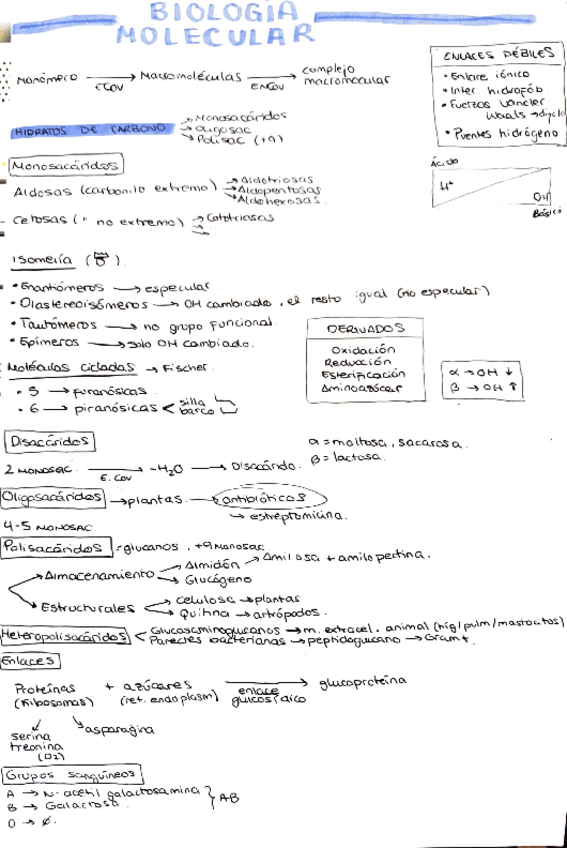 BIOLOGIA
MOLECULAR
ENLACES DÉBILES
• Enlace iónico
• Inter. hidrofób.
• Fuerzas vander
Waals → dipolo
• Puentes hidrógeno
Monómero → Macromoléculas → complejo
macromolecular
ECOV ENCOV
HIDRATOS DE CARBONO → Monosacáridos
→ Oligosac
→ Polisac (+9)
Monosacáridos
Ácido
H+
OH
Básico
Aldosas (carbonilo extremo) → Aldotriosas
→ Aldopentosas
→ Aldohexosas.
Cetosas (" no extremo) → Cetotriosas
Isomería
• Enantiómeros → especular
• Diastereoisómeros → OH cambiado, el resto igual (no especular)
• Tautómeros → no grupo funcional
• Epímeros → solo OH cambiado.
DERIVADOS
Oxidación
Reducción
Esterificación
Aminoazúcar
α → OH ↓
β → OH ↑
Moléculas cicladas → Fischer
• 5 → furanósicas
• 6 → piranósicas < silla
barco
Disacáridos
α = maltosa, sacarosa.
β = lactosa.
2 MONOSAC. → -H2O → Disacárido.
E. COV
Oligosacáridos → plantas → antibióticos
→ estreptomicina.
4-5 MONOSAC.
Polisacáridos = glucanos, +9 Monosac
→ Almacenamiento → Almidón → Amilosa + amilopectina.
→ Glucógeno
→ Estructurales → celulosa → plantas
→ Quitina → artrópodos.
Heteropolisacáridos < Glucosaminoglucanos → m. extracel. animal (hig/pulm/mastocitos)
Paredes bacterianas → peptidoglucano → Gram+.
Enlaces
Proteínas + azúcares → glucoproteína
(ribosomas) (ret. endoplasm) enlace
glucosídico
serina
treonina
(O2)
asparagina
Grupos sanguíneos
A → N-acetil galactosamina } AB
B → Galactosa.
O → Ø.